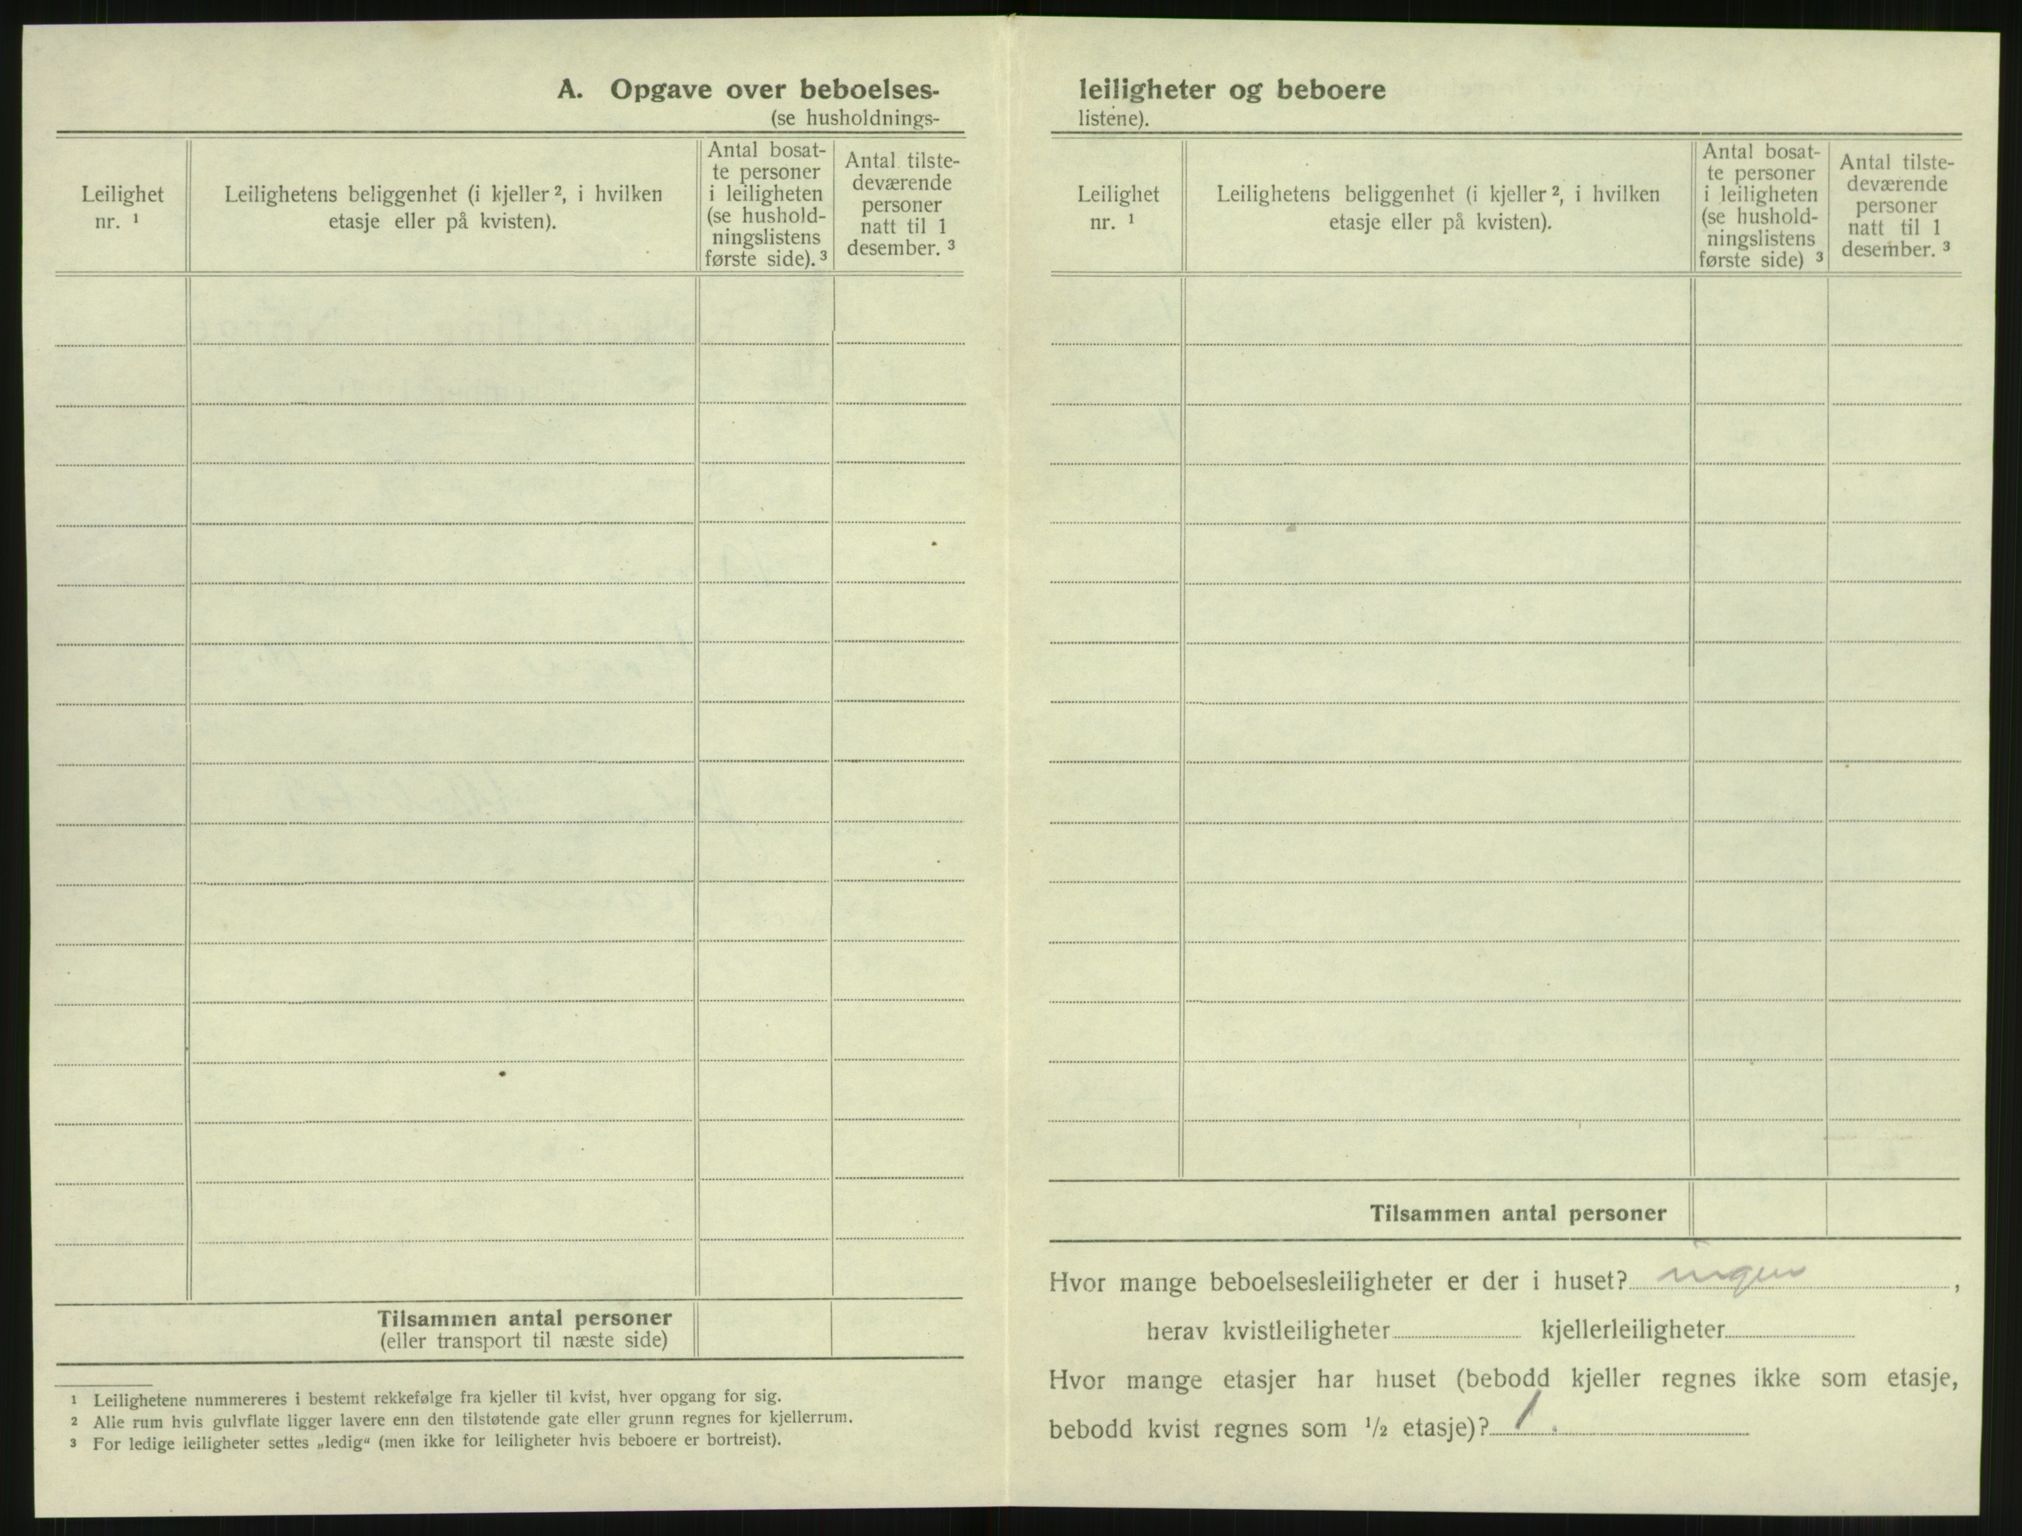 A. Opgave over beboelses-
(se husholdnings-
Leilighet
nr. ¹
Leilighetens beliggenhet (i kjeller ², i hvilken
etasje eller på kvisten).
Antal bosat-
te personer
i leiligheten
(se hushold-
ningslistens
første side). ³
Antal tilste-
deværende
personer
natt til 1
desember. ³
Tilsammen antal personer
(eller transport til næste side)
¹ Leilighetene nummereres i bestemt rekkefølge fra kjeller til kvist, hver opgang for sig.
² Alle rum hvis gulvflate ligger lavere enn den tilstøtende gate eller grunn regnes for kjellerrum.
³ For ledige leiligheter settes „ledig“ (men ikke for leiligheter hvis beboere er bortreist).
leiligheter og beboere
listene).
Leilighet
nr. ¹
Leilighetens beliggenhet (i kjeller ², i hvilken
etasje eller på kvisten).
Antal bosat-
te personer
i leiligheten
(se hushold-
ningslistens
første side) ³
Antal tilste-
deværende
personer
natt til 1
desember. ³
Tilsammen antal personer
Hvor mange beboelsesleiligheter er der i huset? ingen ,
herav kvistleiligheter kjellerleiligheter
Hvor mange etasjer har huset (bebodd kjeller regnes ikke som etasje,
bebodd kvist regnes som ½ etasje)? 1.